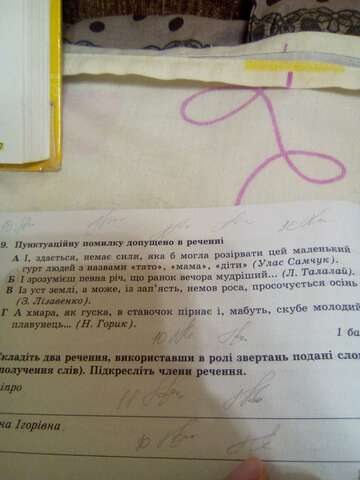 9. Пунктуаційну помилку допущено в реченні
А І, здається, немає сили, яка б могла розірвати цей маленький
гурт людей з назвами «тато», «мама», «діти» (Улас Самчук).
Б І зрозумієш певна річ, що ранок вечора мудріший... (Л. Талалай).
В Із уст землі, а може, із зап'ясть, немов роса, просочується осінь
(З. Лізавенко).
Г А хмара, як гуска, в ставочок пірнає і, мабуть, скубе молодий
плавунець... (Н. Горик).
1 ба
кладіть два речення, використавши в ролі звертань подані сло
получення слів). Підкресліть члени речення.
іпро
на Ігорівна